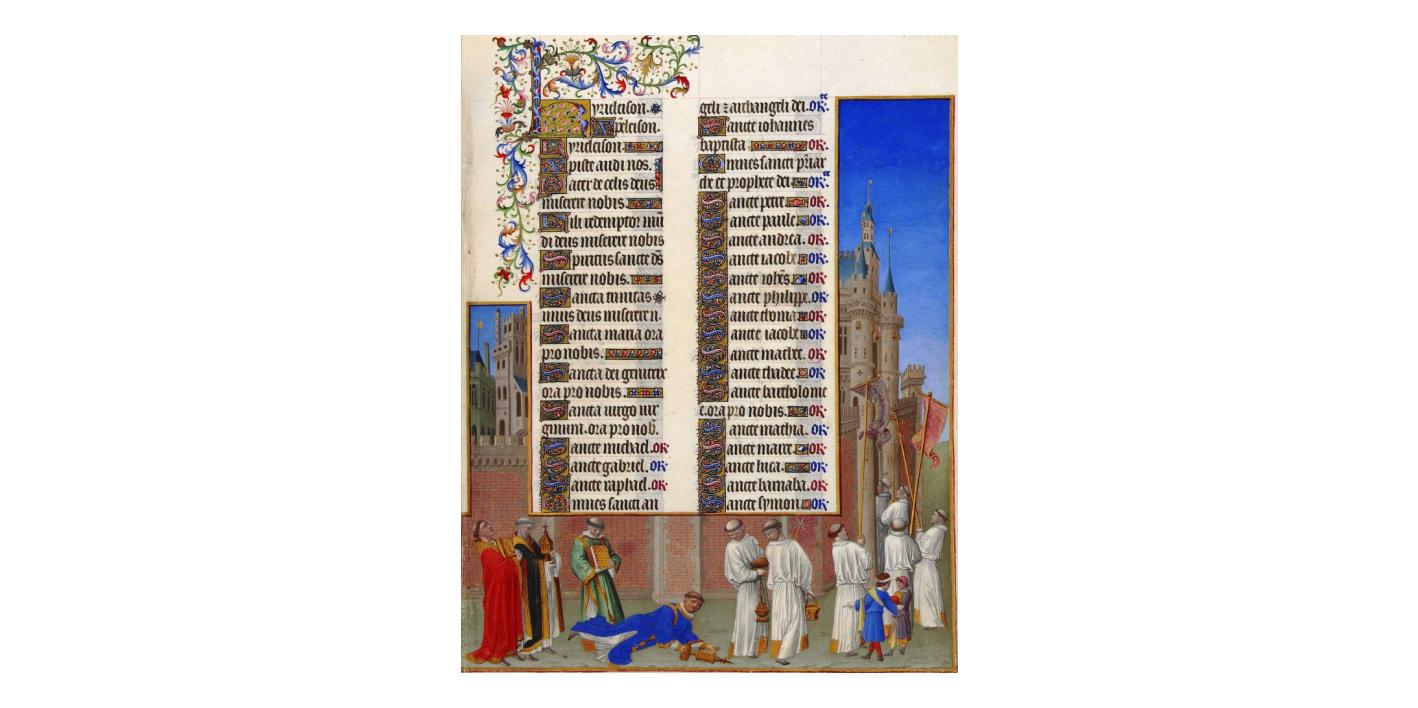 Kyrieleison.
Xp̄eleison.
Kyrieleison.
Xpiste audi nos.
Pater de celis deus
miserere nobis.
Fili redemptor mū
di deus miserere nobis
Spiritus sancte ds̄
miserere nobis.
Sancta trinitas
unus deus miserere n.
Sancta maria ora
pro nobis.
Sancta dei genitrix
ora pro nobis.
Sancta uirgo uir
ginum. ora pro nob̄.
Sancte michael. OR
Sancte gabriel. OR
Sancte raphael. OR
Omnes sancti an
geli z archangeli dei. OR.
Sancte iohannes
baptista OR.
Omnes sancti pr̄iar
che et prophete dei OR.
Sancte petre OR.
Sancte paule OR.
Sancte andrea. OR.
Sancte iacobe OR.
Sancte ioh̄es OR.
Sancte philippe. OR
Sancte thoma OR
Sancte iacobe OR
Sancte mathee. OR
Sancte thadee OR
Sancte bartholome
e. ora pro nobis. OR
Sancte mathia. OR
Sancte marce OR
Sancte luca. OR
Sancte barnaba. OR
Sancte symon OR